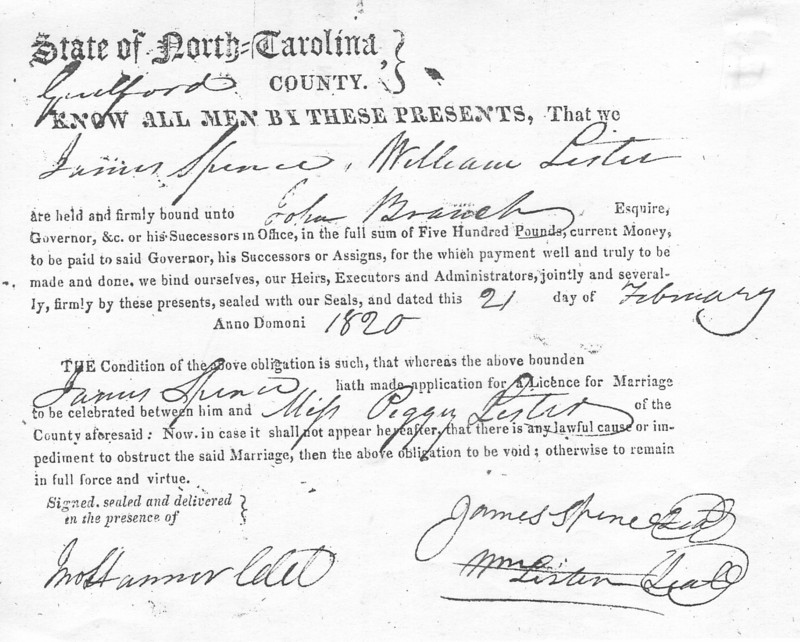 State of North-Carolina,
Guilford COUNTY.
KNOW ALL MEN BY THESE PRESENTS, That we
James Spence, William Lister
are held and firmly bound unto John Branch Esquire,
Governor, &c. or his Successors in Office, in the full sum of Five Hundred Pounds, current Money,
to be paid to said Governor, his Successors or Assigns, for the which payment well and truly to be
made and done, we bind ourselves, our Heirs, Executors and Administrators, jointly and several-
ly, firmly by these presents, sealed with our Seals, and dated this 21 day of February
Anno Domoni 1820
THE Condition of the above obligation is such, that whereas the above bounden
James Spence hath made application for a Licence for Marriage
to be celebrated between him and Miss Peggy Lister of the
County aforesaid: Now, in case it shall not appear hereafter, that there is any lawful cause or im-
pediment to obstruct the said Marriage, then the above obligation to be void; otherwise to remain
in full force and virtue.
Signed, sealed and delivered
in the presence of
James Spence Seal
Jno Hanner
Wm Lister Seal